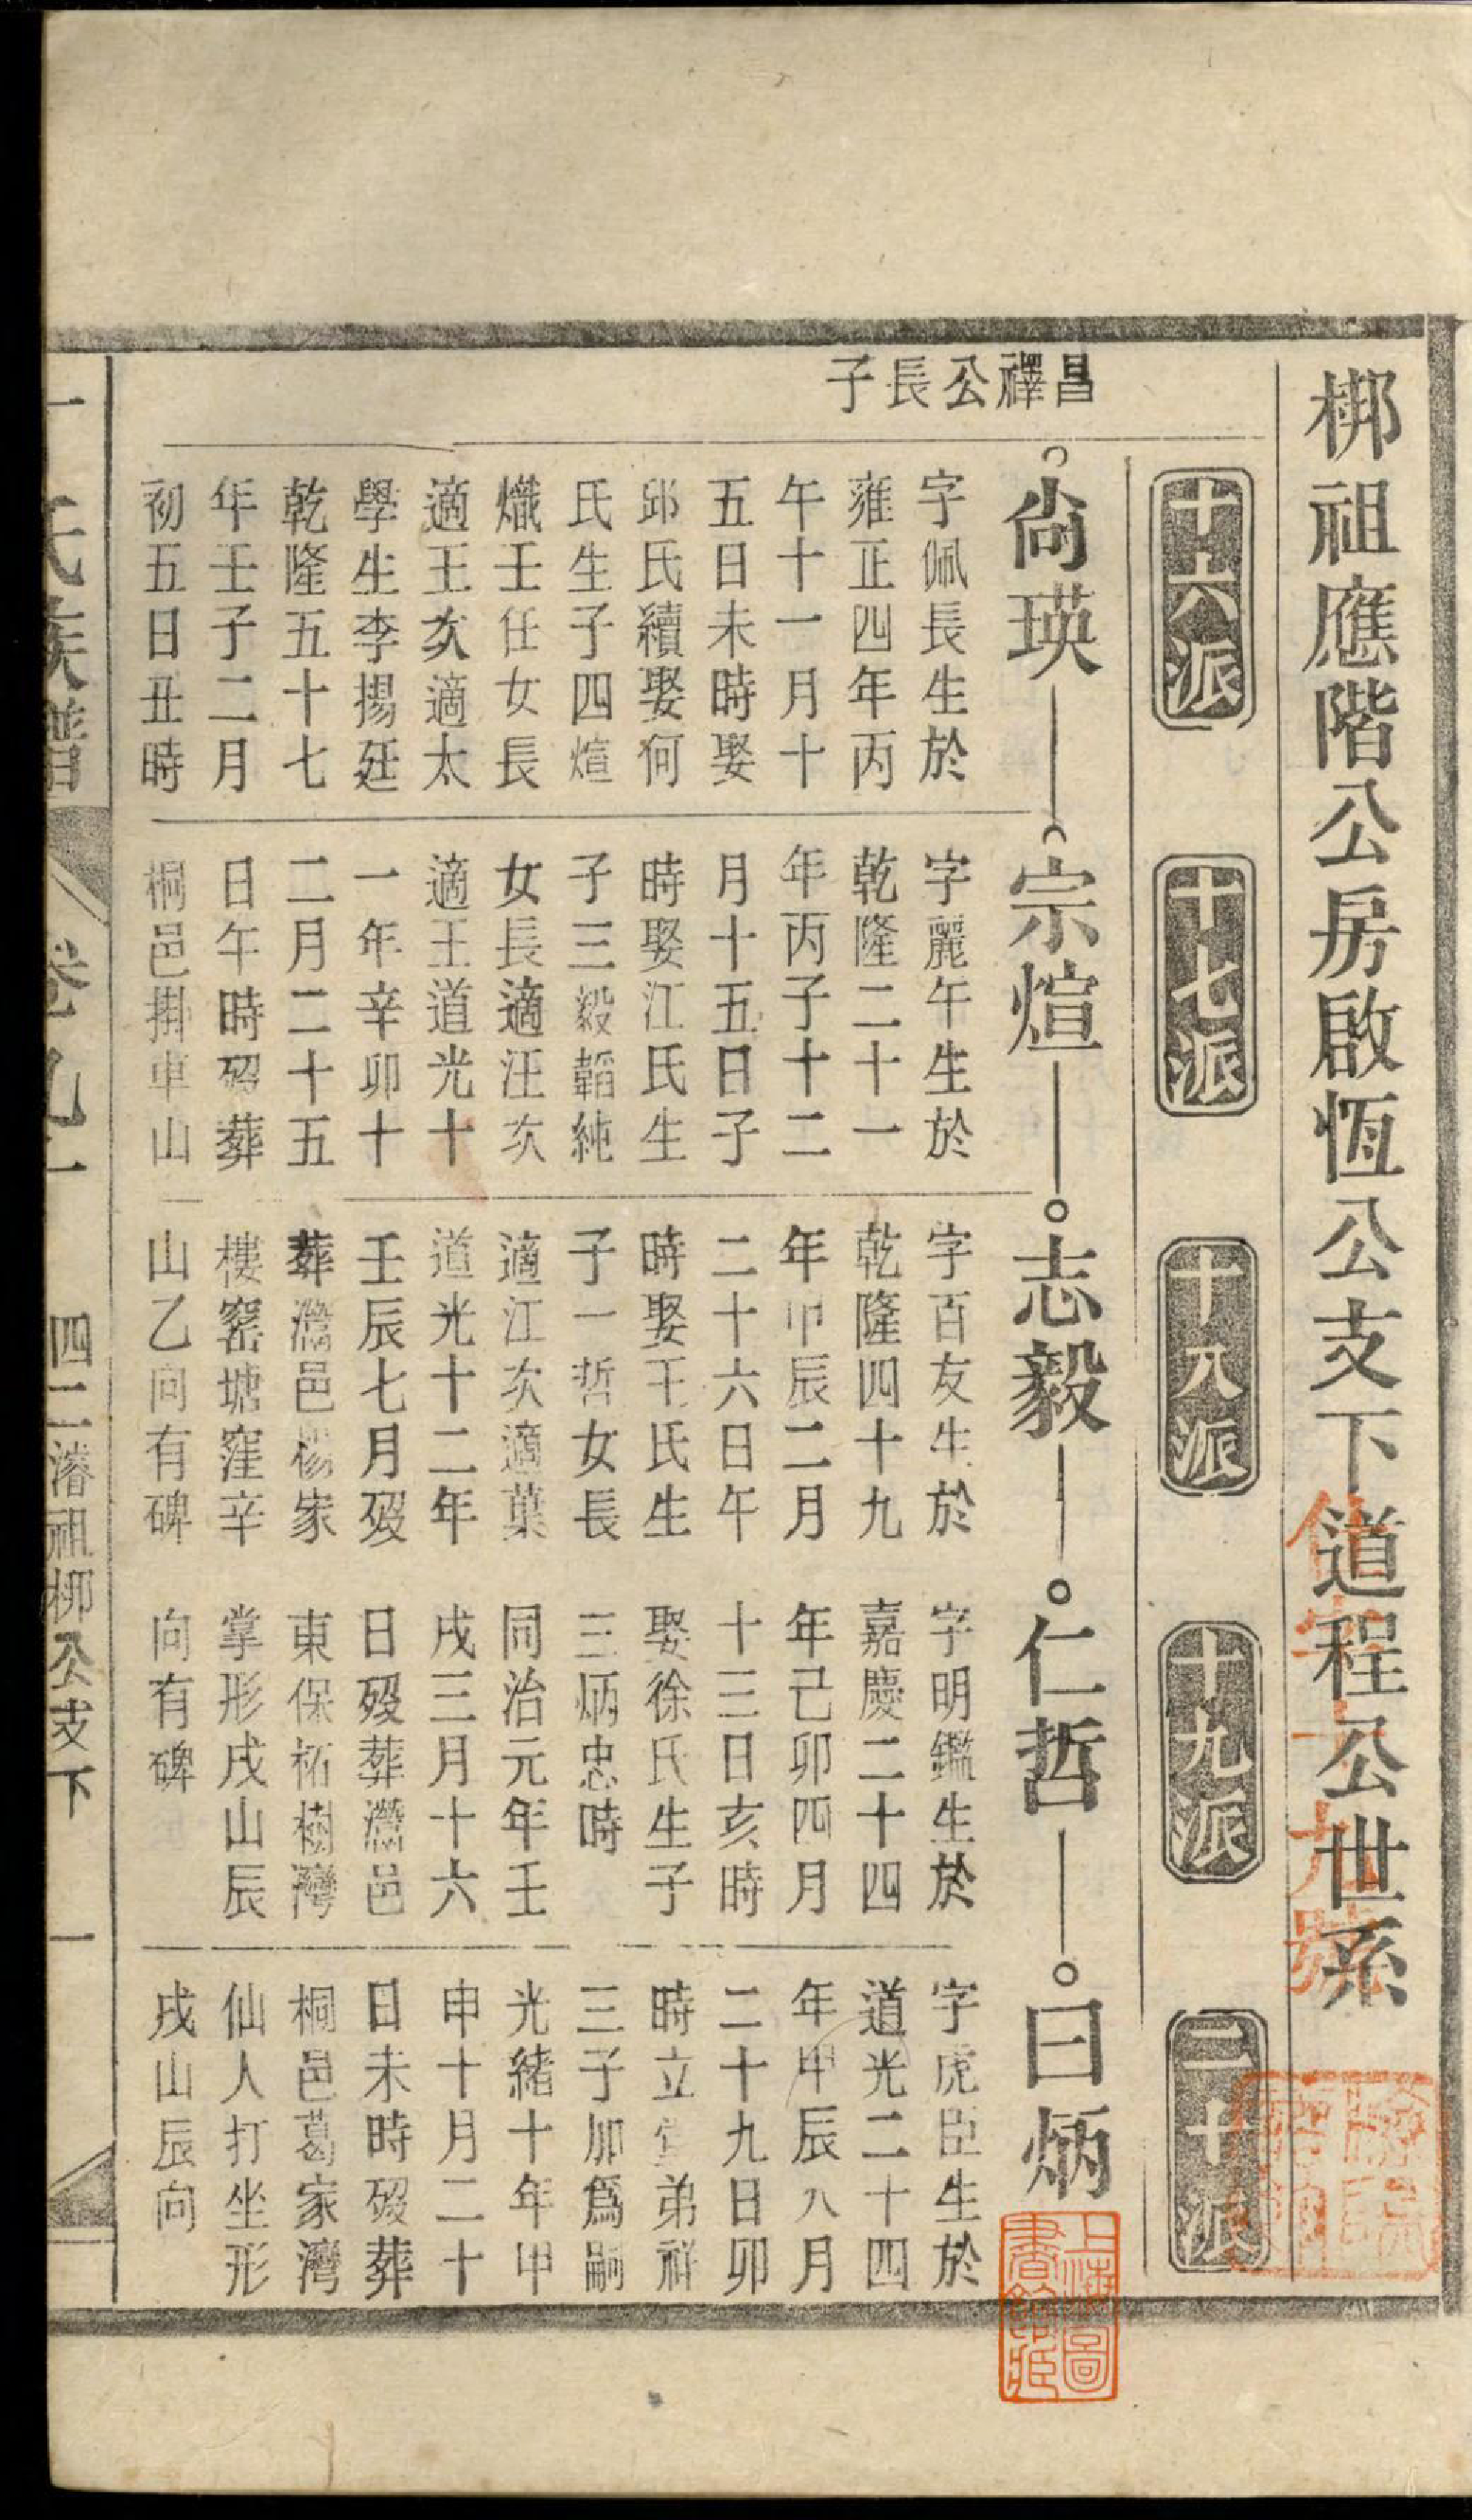 梆祖應階公房啟恆公支下道程公世系
十六派
十七派
十八派
十九派
二十派
昌禪公長子
尙瑛
字佩長生於
雍正四年丙
午十一月十
五日未時娶
邱氏續娶何
氏生子四煊
熾壬任女長
適王次適太
學生李揚廷
乾隆五十七
年壬子二月
初五日丑時
宗煊
字麗午生於
乾隆二十一
年丙子十二
月十五日子
時娶江氏生
子三毅韜純
女長適汪次
適王道光十
一年辛卯十
二月二十五
日午時歿葬
桐邑掛車山
志毅
字百友生於
乾隆四十九
年甲辰二月
二十六日午
時娶王氏生
子一哲女長
適江次適葉
道光十二年
壬辰七月歿
葬灊邑楊家
樓窰塘窪辛
山乙向有碑
仁哲
字明鑑生於
嘉慶二十四
年己卯四月
十三日亥時
娶徐氏生子
三炳忠時
同治元年壬
戌三月十六
日歿葬灊邑
東保柘樹灣
掌形戌山辰
向有碑
曰炳
字虎臣生於
道光二十四
年甲辰八月
二十九日卯
時立弟祥
三子加爲嗣
光緒十年甲
申十月二十
日未時歿葬
桐邑葛家灣
仙人打坐形
戌山辰向
氏族譜
卷九一
四二濬祖梆公支下
一
上海圖書館藏